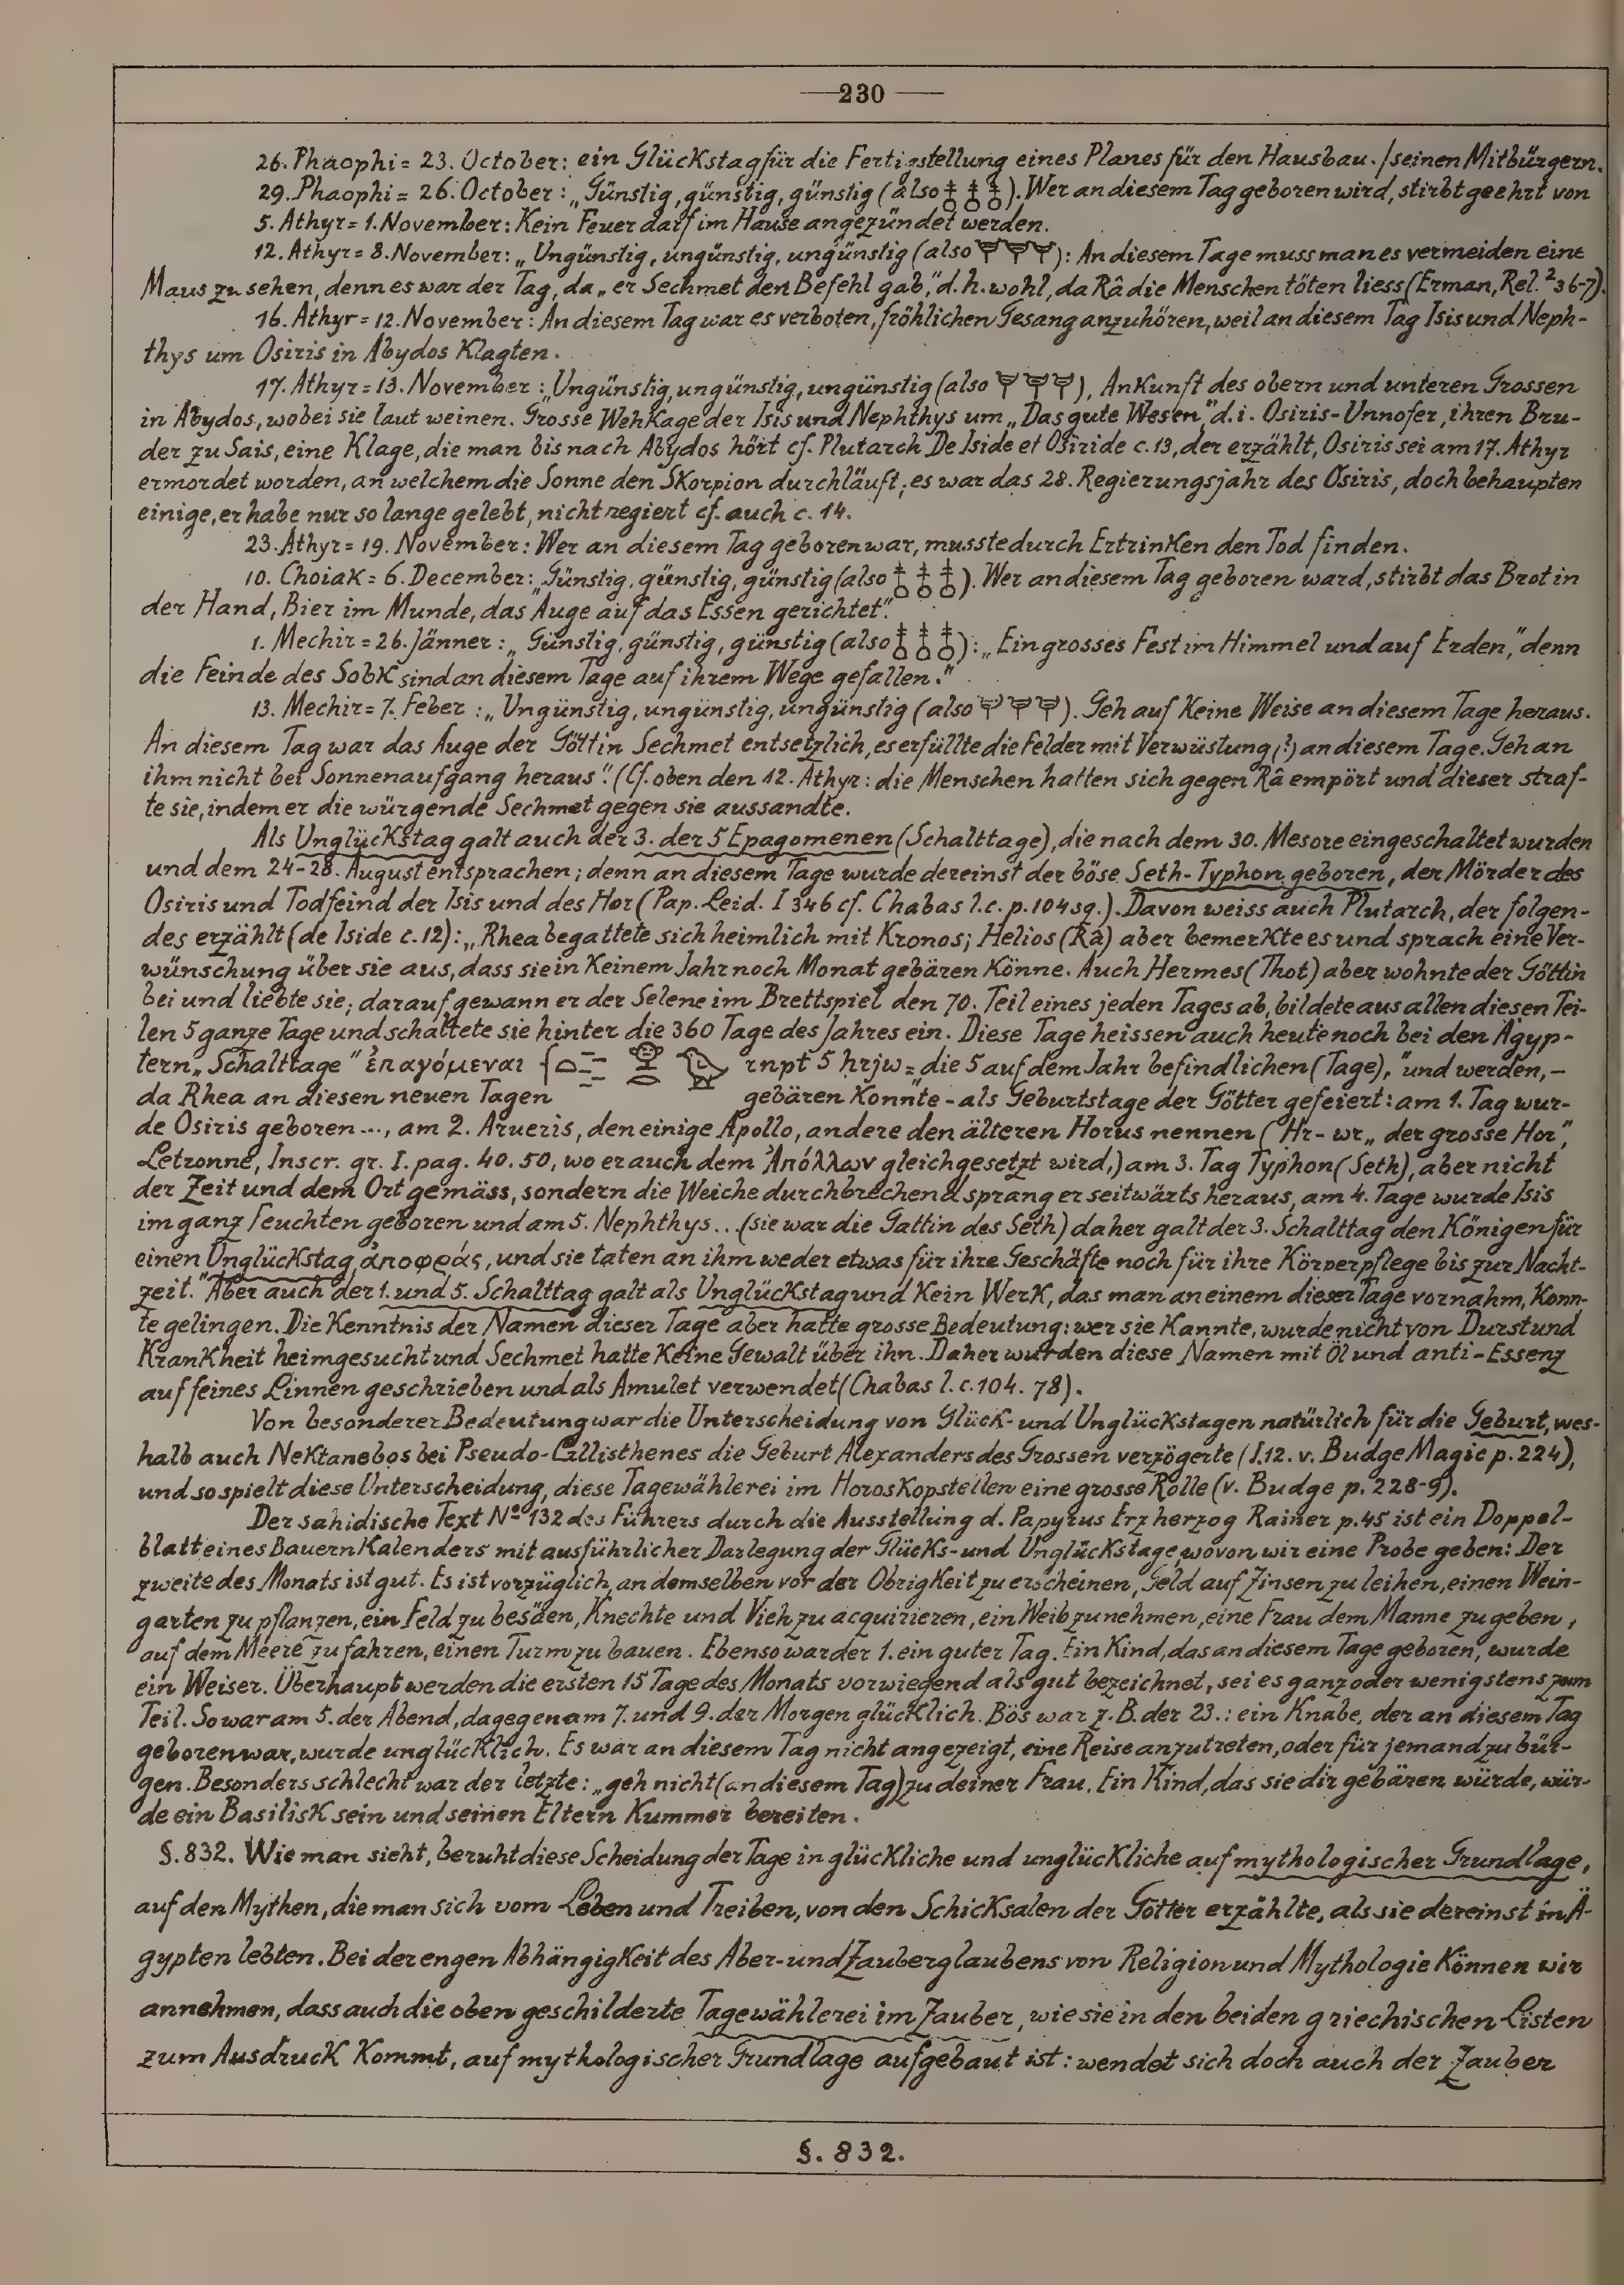 —230—
26. Phaophi = 23. October: ein Glückstag für die Fertigstellung eines Planes für den Hausbau. / seinen Mitbürgern.
29. Phaophi = 26. October: „Günstig, günstig, günstig (also 𓄤 𓄤 𓄤). Wer an diesem Tag geboren wird, stirbt geehrt von
5. Athyr = 1. November: Kein Feuer darf im Hause angezündet werden.
12. Athyr = 8. November: „Ungünstig, ungünstig, ungünstig (also): An diesem Tage muss man es vermeiden eine
Maus zu sehen, denn es war der Tag, da „er Sechmet den Befehl gab," d. h. wohl, da Râ die Menschen töten liess (Erman, Rel.² 36-7).
16. Athyr = 12. November: An diesem Tag war es verboten, fröhlichen Gesang anzuhören, weil an diesem Tag Isis und Neph-
thys um Osiris in Abydos Klagten.
17. Athyr = 13. November: „Ungünstig, ungünstig, ungünstig (also), Ankunft des obern und unteren Grossen
in Abydos, wobei sie laut weinen. Grosse Wehkage der Isis und Nephthys um „Das gute Wesen," d. i. Osiris-Unnofer, ihren Bru-
der zu Sais, eine Klage, die man bis nach Abydos hört cf. Plutarch De Iside et Osiride c. 13, der erzählt, Osiris sei am 17. Athyr
ermordet worden, an welchem die Sonne den Skorpion durchläuft; es war das 28. Regierungsjahr des Osiris, doch behaupten
einige, er habe nur so lange gelebt, nicht regiert cf. auch c. 14.
23. Athyr = 19. November: Wer an diesem Tag geboren war, musste durch Ertrinken den Tod finden.
10. Choiak = 6. December: „Günstig, günstig, günstig (also 𓄤 𓄤 𓄤). Wer an diesem Tag geboren ward, stirbt das Brot in
der Hand, Bier im Munde, das Auge auf das Essen gerichtet".
1. Mechir = 26. Jänner: „Günstig, günstig, günstig (also 𓄤 𓄤 𓄤): „Ein grosses Fest im Himmel und auf Erden," denn
die Feinde des Sobk sind an diesem Tage auf ihrem Wege gefallen."
13. Mechir = 7. Feber: „Ungünstig, ungünstig, ungünstig (also). Geh auf Keine Weise an diesem Tage heraus.
An diesem Tag war das Auge der Göttin Sechmet entsetzlich, es erfüllte die Felder mit Verwüstung (?) an diesem Tage. Geh an
ihm nicht bei Sonnenaufgang heraus". (Cf. oben den 12. Athyr: die Menschen hatten sich gegen Râ empört und dieser straf-
te sie, indem er die würgende Sechmet gegen sie aussandte.
Als Unglückstag galt auch der 3. der 5 Epagomenen (Schalttage), die nach dem 30. Mesore eingeschaltet wurden
und dem 24-28. August entsprachen; denn an diesem Tage wurde dereinst der böse Seth-Typhon geboren, der Mörder des
Osiris und Todfeind der Isis und des Hor (Pap. Leid. I 346 cf. Chabas l. c. p. 104 sq.). Davon weiss auch Plutarch, der folgen-
des erzählt (de Iside c. 12): „Rhea begattete sich heimlich mit Kronos; Helios (Râ) aber bemerkte es und sprach eine Ver-
wünschung über sie aus, dass sie in Keinem Jahr noch Monat gebären Könne. Auch Hermes (Thot) aber wohnte der Göttin
bei und liebte sie; darauf gewann er der Selene im Brettspiel den 70. Teil eines jeden Tages ab, bildete aus allen diesen Tei-
len 5 ganze Tage und schaltete sie hinter die 360 Tage des Jahres ein. Diese Tage heissen auch heute noch bei den Ägyp-
tern „Schalttage" ἐπαγόμεναι rnpt 5 hrjw = die 5 auf dem Jahr befindlichen (Tage)," und werden, –
da Rhea an diesen neuen Tagen gebären Konnte – als Geburtstage der Götter gefeiert: am 1. Tag wur-
de Osiris geboren ..., am 2. Arueris, den einige Apollo, andere den älteren Horus nennen (Hr-wr „der grosse Hor",
Letronne, Inscr. gr. I. pag. 40. 50, wo er auch dem Ἀπόλλων gleichgesetzt wird,) am 3. Tag Typhon (Seth), aber nicht
der Zeit und dem Ort gemäss, sondern die Weiche durchbrechend sprang er seitwärts heraus, am 4. Tage wurde Isis
im ganz feuchten geboren und am 5. Nephthys... (sie war die Gattin des Seth) daher galt der 3. Schalttag den Königen für
einen Unglückstag, ἀποφράς, und sie taten an ihm weder etwas für ihre Geschäfte noch für ihre Körperpflege bis zur Nacht-
zeit." Aber auch der 1. und 5. Schalttag galt als Unglückstag und Kein Werk, das man an einem dieser Tage vornahm, Konn-
te gelingen. Die Kenntnis der Namen dieser Tage aber hatte grosse Bedeutung: wer sie Kannte, wurde nicht von Durst und
Krankheit heimgesucht und Sechmet hatte Keine Gewalt über ihn. Daher wurden diese Namen mit Öl und anti-Essenz
auf feines Linnen geschrieben und als Amulet verwendet (Chabas l. c. 104. 78).
Von besonderer Bedeutung war die Unterscheidung von Glück- und Unglückstagen natürlich für die Geburt, wes-
halb auch Nektanebos bei Pseudo-Callisthenes die Geburt Alexanders des Grossen verzögerte (I. 12. v. Budge Magic p. 224),
und so spielt diese Unterscheidung, diese Tagewählerei im Horoskopstellen eine grosse Rolle (v. Budge p. 228-9).
Der sahidische Text Nº 132 des Führers durch die Ausstellung d. Papyrus Erzherzog Rainer p. 45 ist ein Doppel-
blatt eines Bauernkalenders mit ausführlicher Darlegung der Glücks- und Unglückstage, wovon wir eine Probe geben: Der
zweite des Monats ist gut. Es ist vorzüglich, an demselben vor der Obrigkeit zu erscheinen, Geld auf Zinsen zu leihen, einen Wein-
garten zu pflanzen, ein Feld zu besäen, Knechte und Vieh zu acquirieren, ein Weib zu nehmen, eine Frau dem Manne zu geben,
auf dem Meere zu fahren, einen Turm zu bauen. Ebenso war der 1. ein guter Tag. Ein Kind, das an diesem Tage geboren, wurde
ein Weiser. Überhaupt werden die ersten 15 Tage des Monats vorwiegend als gut bezeichnet, sei es ganz oder wenigstens zum
Teil. So war am 5. der Abend, dagegen am 7. und 9. der Morgen glücklich. Bös war z. B. der 23.: ein Knabe, der an diesem Tag
geboren war, wurde unglücklich. Es war an diesem Tag nicht angezeigt, eine Reise anzutreten, oder für jemand zu bür-
gen. Besonders schlecht war der letzte: „geh nicht (an diesem Tag) zu deiner Frau. Ein Kind, das sie dir gebären würde, wür-
de ein Basilisk sein und seinen Eltern Kummer bereiten.
§. 832. Wie man sieht, beruht diese Scheidung der Tage in glückliche und unglückliche auf mythologischer Grundlage,
auf den Mythen, die man sich vom Leben und Treiben, von den Schicksalen der Götter erzählte, als sie dereinst in Ä-
gypten lebten. Bei der engen Abhängigkeit des Aber- und Zauberglaubens von Religion und Mythologie Können wir
annehmen, dass auch die oben geschilderte Tagewählerei im Zauber, wie sie in den beiden griechischen Listen
zum Ausdruck Kommt, auf mythologischer Grundlage aufgebaut ist: wendet sich doch auch der Zauber
§. 832.